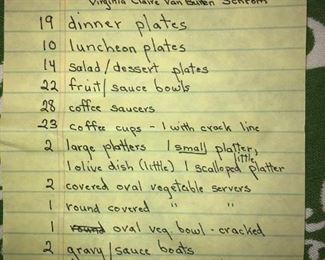 Virginia Claire Van Buren
19 dinner plates
10 luncheon plates
14 salad/dessert plates
22 fruit/sauce bowls
28 coffee saucers
23 coffee cups - 1 with crack line
2 large platters 1 small platter,
1 olive dish (little) 1 scalloped little platter
2 covered oval vegetable servers
1 round covered " "
1 round oval veg. bowl - cracked
2 gravy/sauce boats